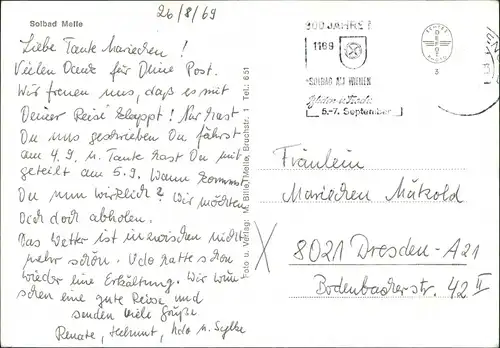 Solbad Melle
26/8/69
Liebe Tante Mariechen!
Vielen Dank für Deine Post.
Wir freuen uns, daß es mit
Deiner Reise klappt! Nur hast
Du uns geschrieben Du fährst
am 4.9. u. Tante hast Du mit
geteilt am 5.9. Wann kommst
Du nun wirklich? Wir möchten
Dich doch abholen.
Das Wetter ist inzwischen nicht
mehr schön. Udo hatte schon
wieder eine Erkältung. Wir wün
schen eine gute Reise und
senden viele Grüße
Renate, Helmut, Udo u. Sylke
Foto u. Verlag: M. Bille, Melle, Bruchstr. 1 Tel.: 651
800 JAHRE
1169
5.-7. September
ECHTES
FOTO
3
Fräulein
Mariechen Mätzold
8021 Dresden-A21
Bodenbacherstr. 42 II